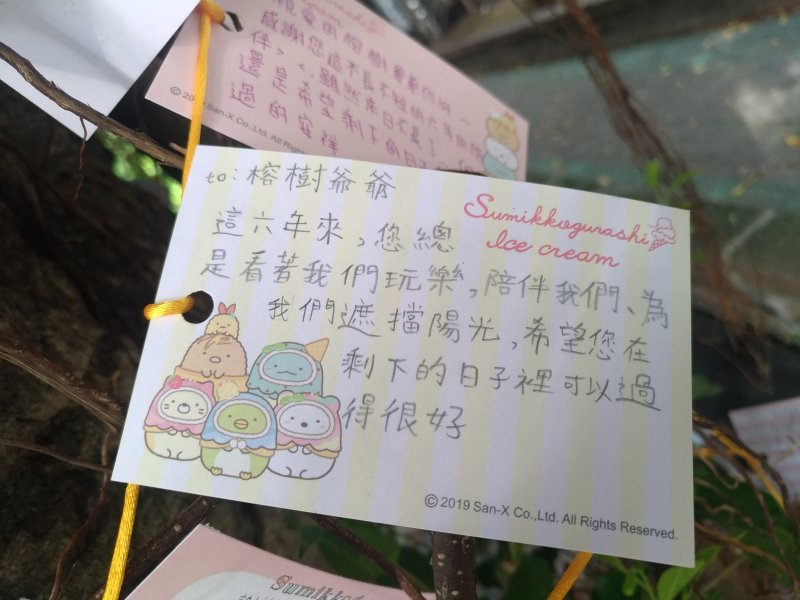 感謝您這不長不短的六年的陪
伴，雖然來日不長了
還是希望剩下的日子
過的安祥
© 2019 San-X Co.,Ltd. All Rights
to：榕樹爺爺
Sumikkogurashi
Ice cream
這六年來，您總
是看著我們玩樂，陪伴我們、為
我們遮擋陽光，希望您在
剩下的日子裡可以過
得很好
© 2019 San-X Co.,Ltd. All Rights Reserved.
Sumikkogu